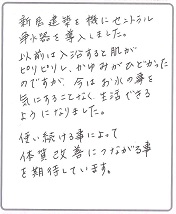 新居建築を機にセントラル
浄水器を導入しました。
以前は入浴すると肌が
ピリピリし、かゆみがひどかった
のですが、今はお水の事を
気にすることなく生活できる
ようになりました。
使い続ける事によって
体質改善につながる事
を期待しています。